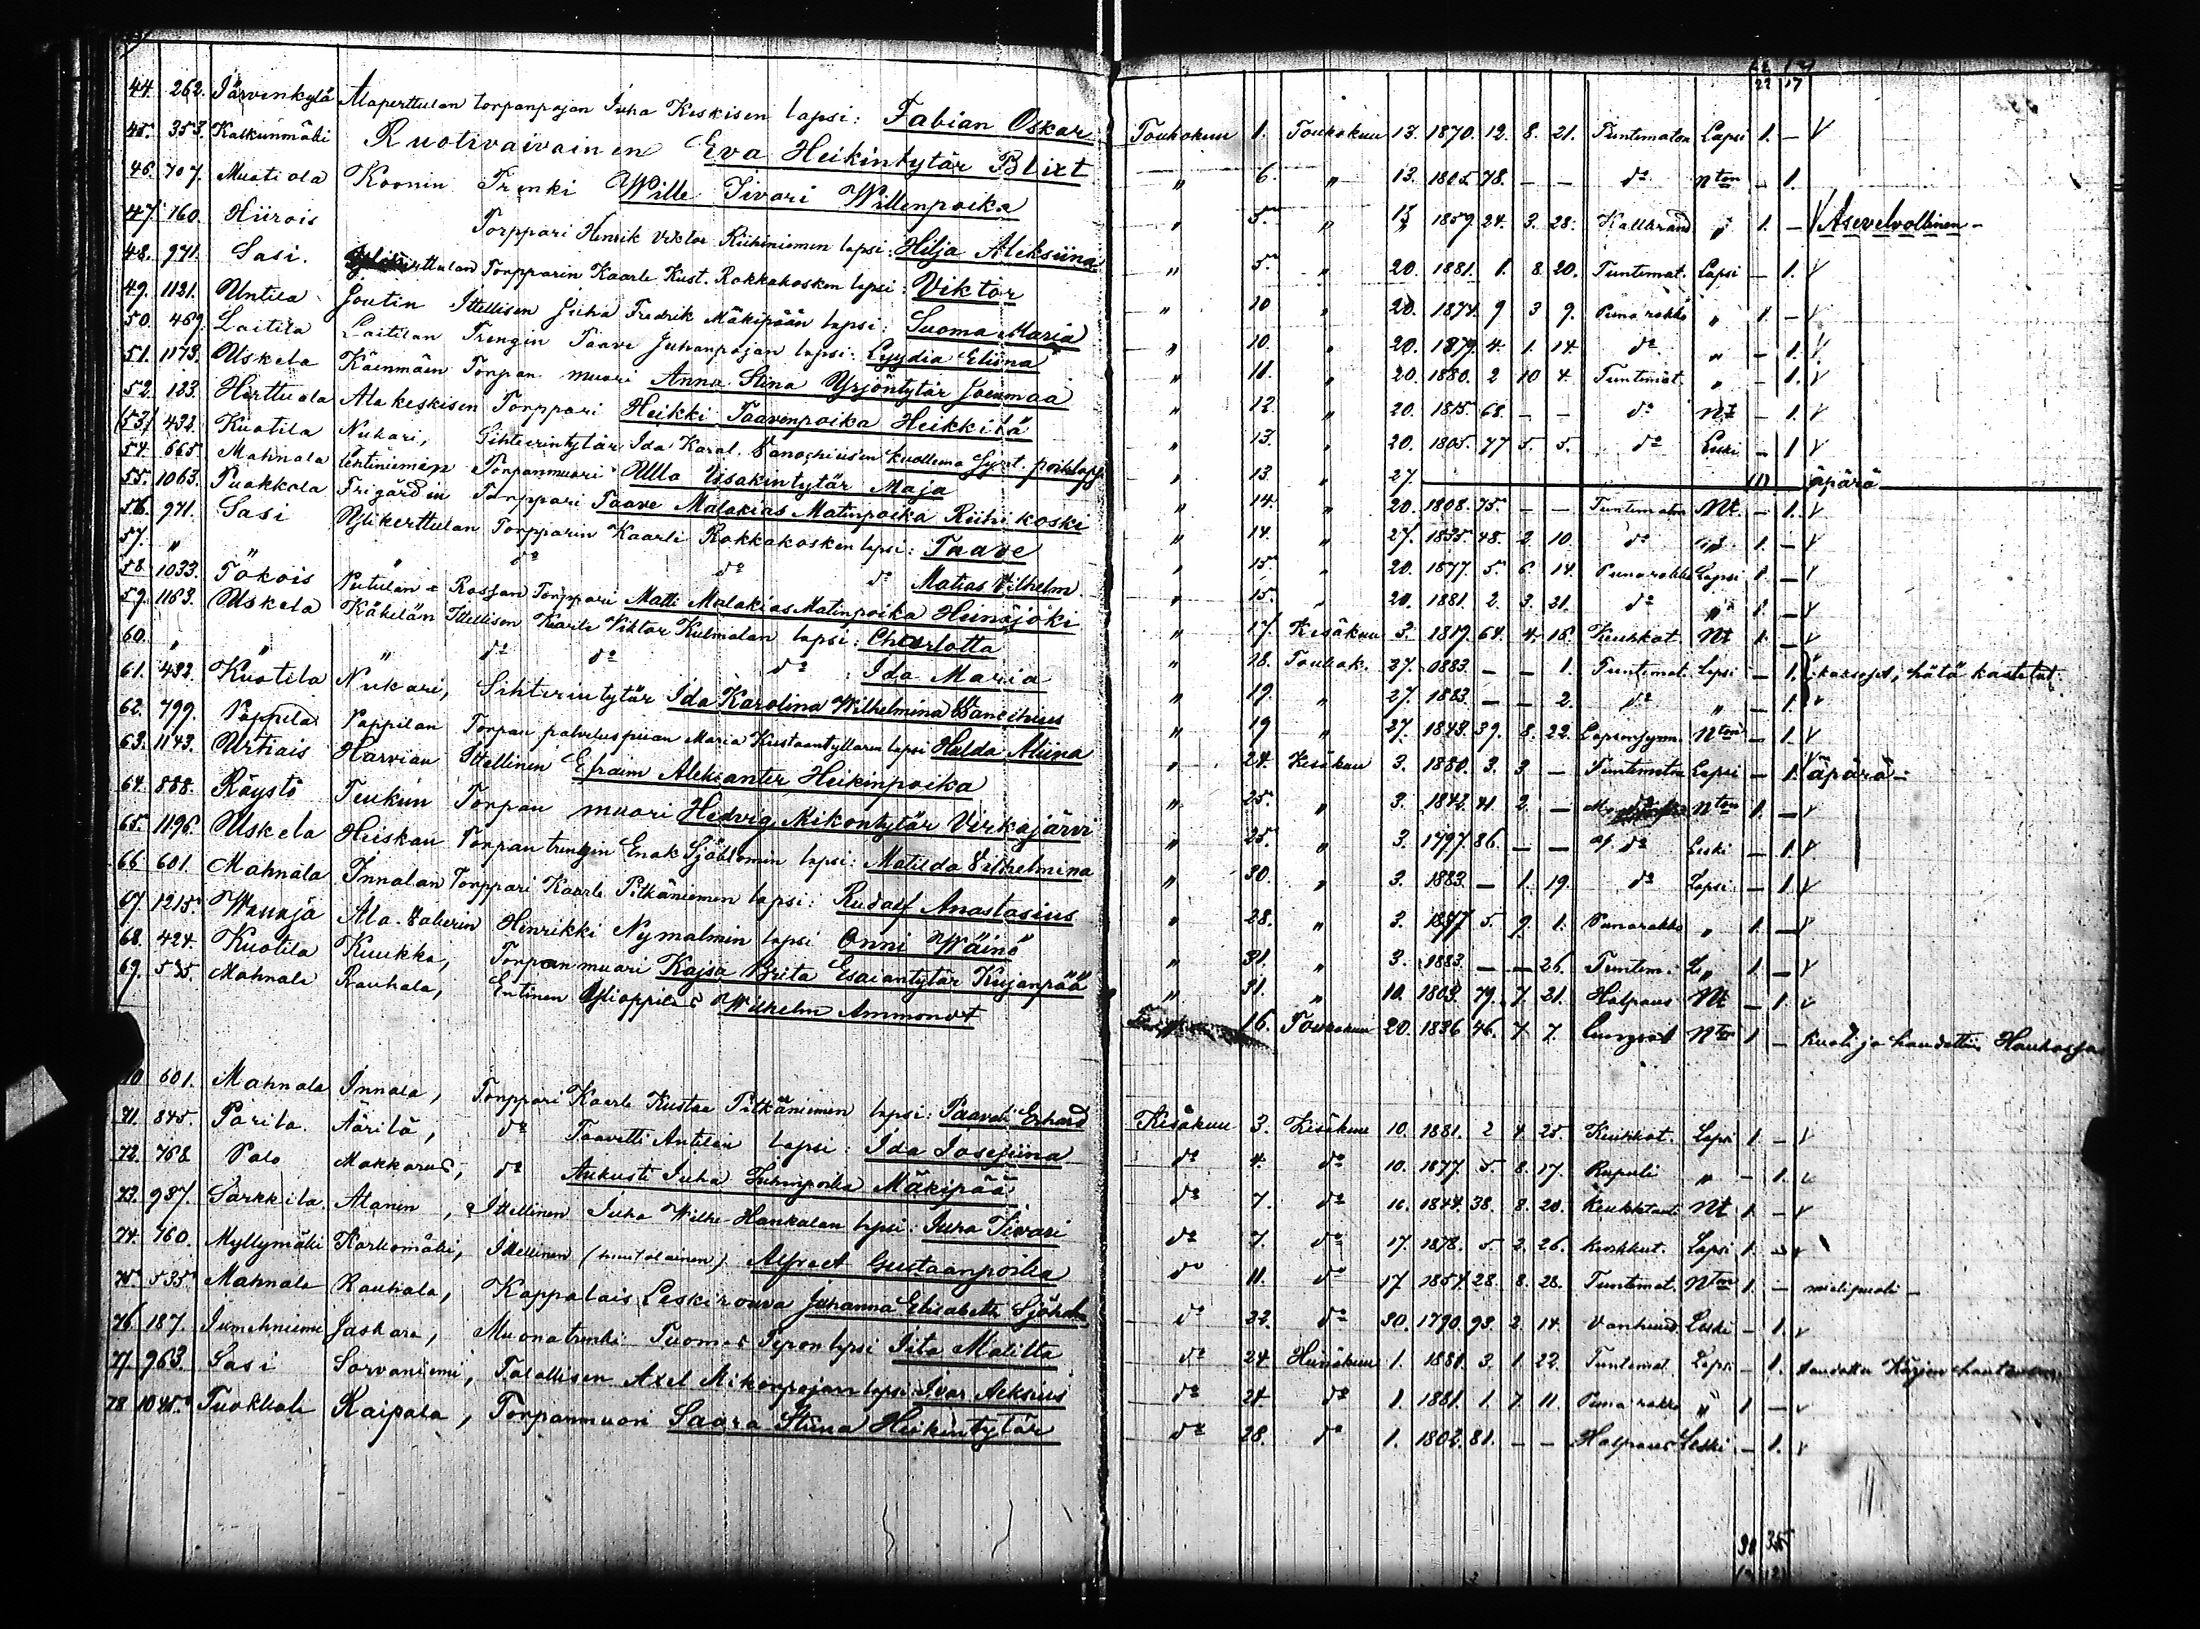 22 17
44. 262. Järvenkylä Alaperttulan torpanpojan Juha Keskisen lapsi: Fabian Oskar Toukokuu 1. Toukokuu 13. 1870. 12. 8. 21. Tuntematon Lapsi 1. – V
45. 353. Kalkunmäki Ruotivaivainen Eva Heikintytär Blixt " 6. " 13. 1805. 78. – – d:o N:ton – 1.
46. 707. Muotiala Koonin Trenki Wille Iivari Willenpoika " 5. " 13 1859. 24. 3. 28. Kallbrand " 1. – V Asevelvollinen –
47. 160. Hiirois Torppari Henrik Viktor Riihiniemen lapsi: Hilja Aleksiina " 5. " 20. 1881. 1. 8. 20. Tuntemat. Lapsi – 1. V
48. 971. Sasi. Torpparin Kaarle Kust. Rokkakosken lapsi: Viktor " 10 " 20. 1874. 9 3 9. Punarokko " 1. – V
49. 1121. Untila Joutin Ittellisen Juha Fredrik Mäkipään lapsi: Suoma Maria " 10. " 20. 1879. 4. 1. 14. d:o " – 1. V
50. 469. Laitila Laitilan Trengin Taave Juhanpojan lapsi: Lyydia Eliina " 11. " 20. 1880. 2 10 4. Tuntemat. " – 1. V
51. 1173. Uskela Käenmäen Torpan muori Anna Stina Yrjöntytär Joenmaa " 12. " 20. 1815. 68. – – d:o N:t – 1. V
52. 123. Herttuala Alakeskisen Torppari Heikki Taavenpoika Heikkilä " 13. " 20. 1805. 77 5. 5. d:o Leski – 1 V
(53) 432. Kuotila Nukari, Sihteerintytär Ida Karol. kuollena Synt. poikalapsi " 13 " 27. (1) äpärä
54. 665. Mahnala Lehtiniemen Torpanmuori Ulla Iisakintytär Maja " 14. " 20. 1808. 75. – – Tuntematon N:t – 1. V
55. 1063. Puokkala Frigårdin Torppari Taave Malakias Matinpoika Riihikoski " 14. " 27. 1835. 48. 2 10. d:o 1. – V
56. 971. Sasi Ylikerttulan Torpparin Kaarle Rokkakosken lapsi: Taave " 15. " 20. 1877. 5. 6. 14. Punarokko Lapsi 1. – V
57. " " " d:o d:o d:o Matias Vilhelm. " 15. " 20. 1881. 2. 3. 21. d:o " 1. – V
58. 1033. Tökois Torppari Matti Malakias Matinpoika Heinäjoki " 17. Kesäkuu 3. 1819. 64. 4. 18. Keuhkot. N:t 1. – V
59. 1163. Uskela Käkelän Ittellisen Kaarle Viktor Kulmalan lapsi: Charlotta " 18. Toukok. 27. 1883. – – 1. Tuntemat. Lapsi – 1. kaksoset, hätä kastetut
60. " " " d:o d:o d:o Ida Maria " 19. " 27. 1883. – – 2. d:o " – 1. V
61. 432. Kuotila Nukari, Sihterintytär Ida Karolina Wilhelmina " 19 " 27. 1843. 39. 8. 22. Lapsensynn. N:ton – 1. V
62. 799. Pappila Pappilan Torpan palveluspiian Maria Kustaantyttaren lapsi Hulda Aliina " 24. Kesäkuu 3. 1880. 3. 3 – Tuntematon Lapsi – 1. V äpärä –
63. 1143. Urtiais Harvian Ittellinen Efraim Aleksanter Heikinpoika " 25. " 3. 1842. 41 2. – N:ton 1. – V
64. 888. Röystö Teukun Torpan muori Hedvig Mikontytär Virkajärvi " 25. " 3. 1797. 86. – – d:o Leski – 1. V
65. 1196. Uskela Heiskan Torpan trengin Enok Sjöblomin lapsi: Matilda Vilhelmina " 30. " 3. 1883. – 1. 19. d:o Lapsi – 1 V
66. 601. Mahnala Innalan Torppari Kaarle Pitkäniemen lapsi: Rudolf Anastasius " 28. " 3. 1877 5. 9. 1. Punarokko " 1. – V
67. 1215. Wanaja Ala- Henrikki Nymalmin lapsi Onni Wäinö " 31. " 3. 1883. – – 26. Tuntem. " 1. – V
68. 424. Kuotila Kuukka, Torpan muori Kajsa Brita Esaiantytär Kujanpää " 31. " 10. 1803. 79. 7. 21. Halpaus N:t – 1. V
69. 535. Mahnala Rauhala, Entinen Ylioppilas Wilhelm Ammondt 16. Toukokuu 20. 1836. 46. 7. 7. N:ton 1 – Kuoli ja haudattiin
70 601. Mahnala Innala, Torppari Kaarle Kustaa Pitkäniemen lapsi: Paavali Erhard Kesäkuu 3. Kesäkuu 10. 1881. 2 4. 25. Keuhkot. Lapsi 1. – V
71. 845. Parila. Äärilä, d:o Taavetti Antilan lapsi: Ida Josefiina d:o 4. d:o 10. 1877. 5. 8. 17. Rupuli " – 1. V
72. 768 Palo Makkaras, d:o Aukusti Juha Juhanpoika Mäkipää d:o 7. d:o 10. 1844. 38. 8. 20. Keuhktaut N:t 1. – V
73. 987. Sarkkila. Alanen, Ittellinen Juha Wilhe Hankalan lapsi: Juha Iivari d:o 7. d:o 17. 1878. 5. 2. 26. Keuhkut. Lapsi 1. – V
74. 760. Myllymäki Karhomäki, Ittellinen Alfred Gustaanpoika d:o 11. d:o 17 1854. 28. 8. 28. Tuntemat. N:ton 1. – mielipuoli –
75. 535. Mahnala Rauhala, Kappalais Leskirouva Juhanna Elisabeth d:o 22. d:o 30. 1790. 93. 2. 14. Vanhuud. Leski – 1. V
76. 187. Jumehniemi Jaskara, Muonatrenki Tuomas Seponlapsi Iita Matilta d:o 24. Heinäkuu 1. 1880. 3. 1. 22. Tuntemat. Lapsi – 1.
77. 963. Sasi Sorvaniemi, Talollisen Axel Mikonpojan lapsi: Ivar Aleksius d:o 24. d:o 1. 1881. 1. 7. 11. Punarokko " 1 – V
78 1045. Tuokkola Kaipala, Torpanmuori Saara Stiina Heikintytär d:o 28. d:o 1. 1802. 81. – – Halpaus Leski – 1. V